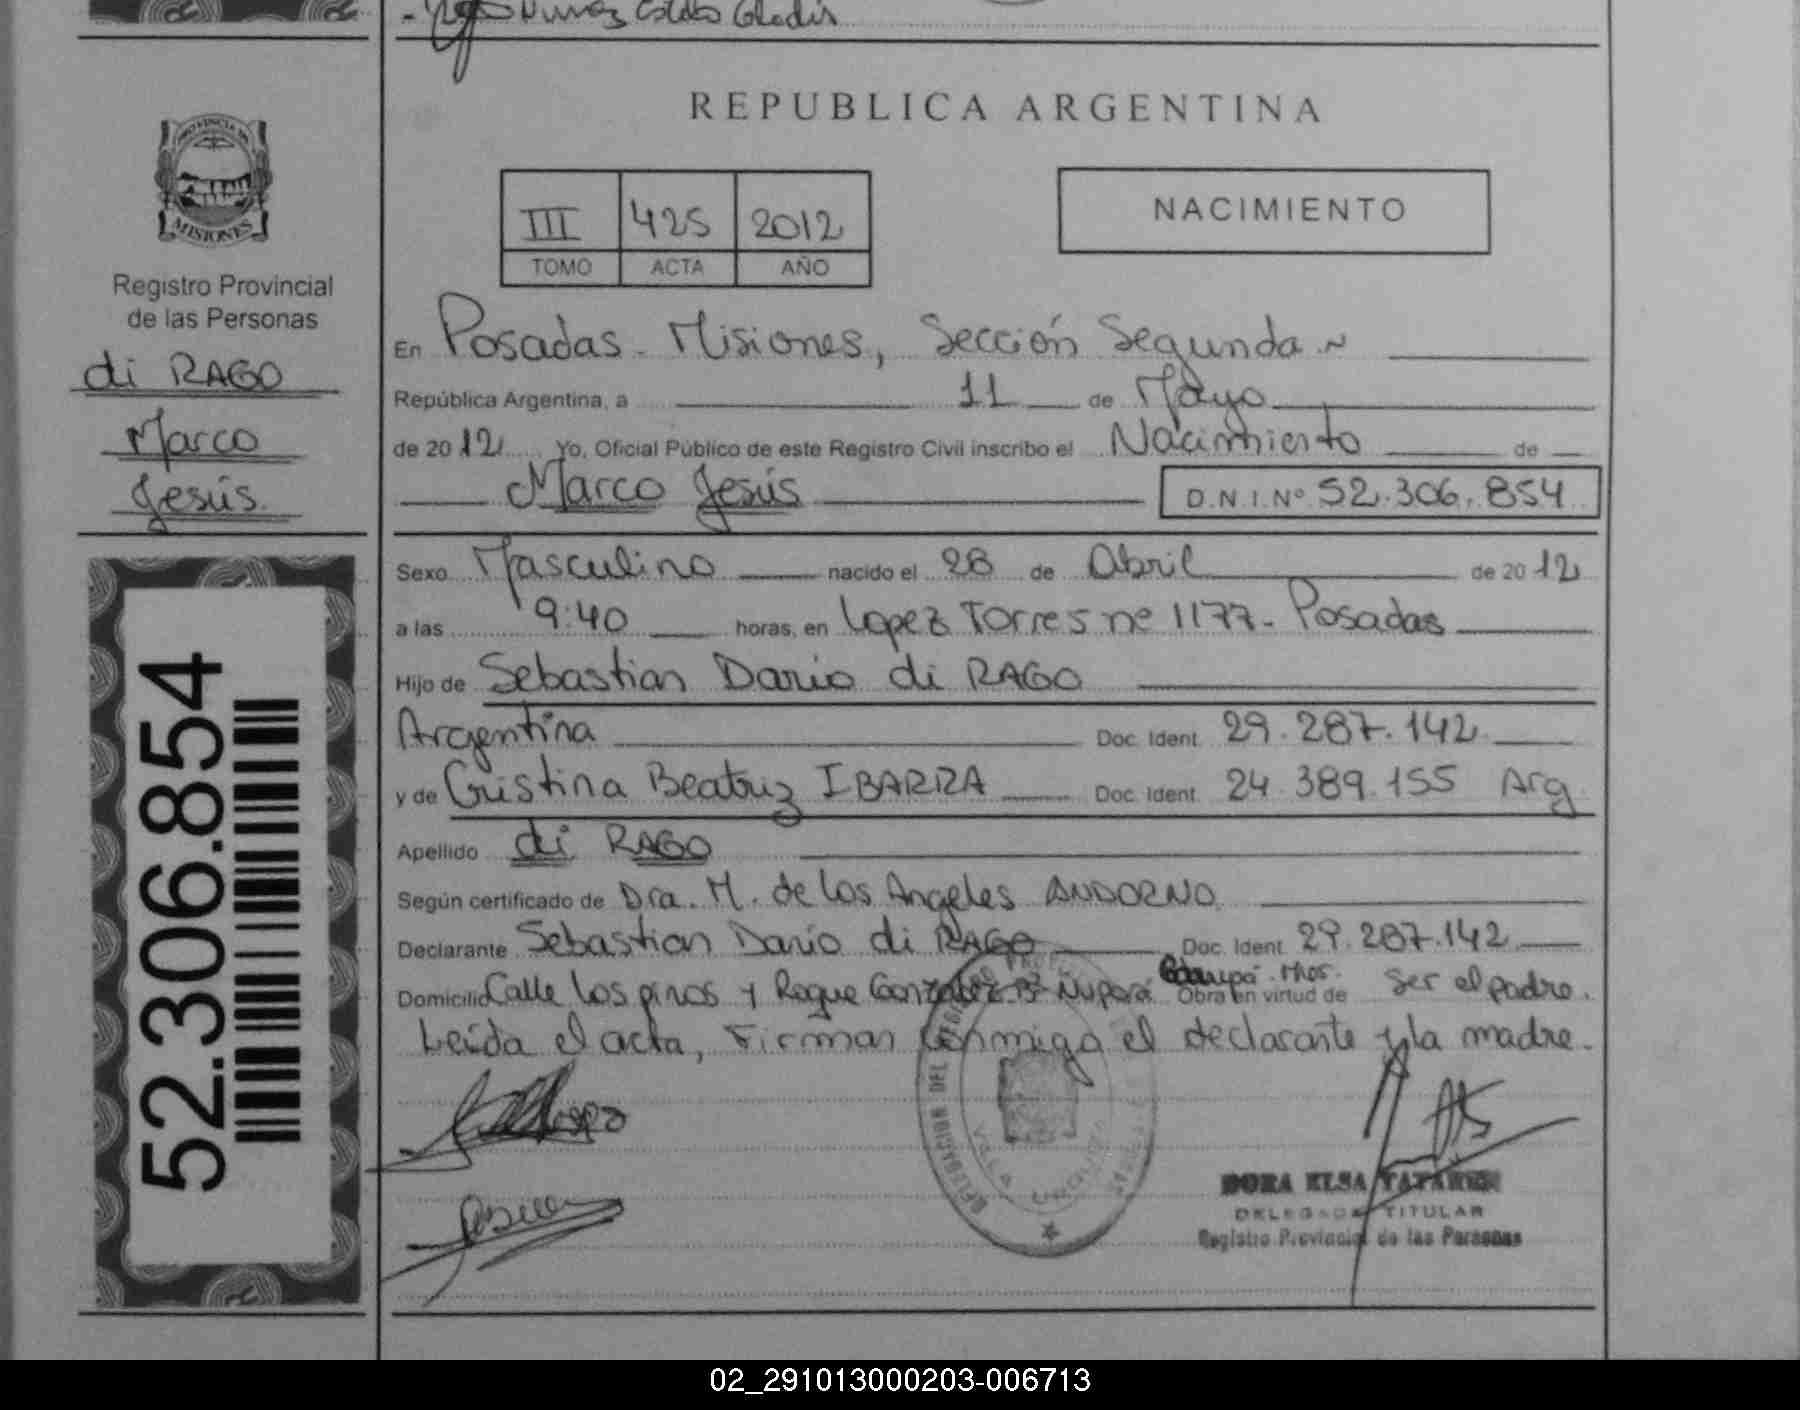 Nuñez Gladis
REPUBLICA ARGENTINA
PROVINCIA DE
MISIONES
Registro Provincial
de las Personas
di RAGO
Marco
Jesús.
III 425 2012
TOMO ACTA AÑO
NACIMIENTO
En Posadas - Misiones, Sección Segunda
República Argentina, a 11 de Mayo
de 2012 Yo, Oficial Público de este Registro Civil inscribo el Nacimiento de
Marco Jesús D.N.I.Nº 52.306.854
Sexo Masculino nacido el 28 de Abril de 2012
a las 9:40 horas, en Lopez Torres ne 1177 - Posadas
Hijo de Sebastian Dario di RAGO
Argentina Doc. Ident. 29.287.142
y de Cristina Beatriz IBARRA Doc. Ident. 24.389.155 Arg.
Apellido di RAGO
Según certificado de Dra. M. de los Angeles ANDORNO
Declarante Sebastian Dario di RAGO Doc. Ident. 29.287.142
Domicilio Calle los pinos y Roque Gonzalez Bº Obra en virtud de ser el padre.
Leída el acta, Firman conmigo el declarante y la madre.
52.306.854
DELEGACION DEL REGISTRO
VILLA URQUIZA
DORA ELSA
DELEGADA TITULAR
Registro Provincial de las Personas
02_291013000203-006713